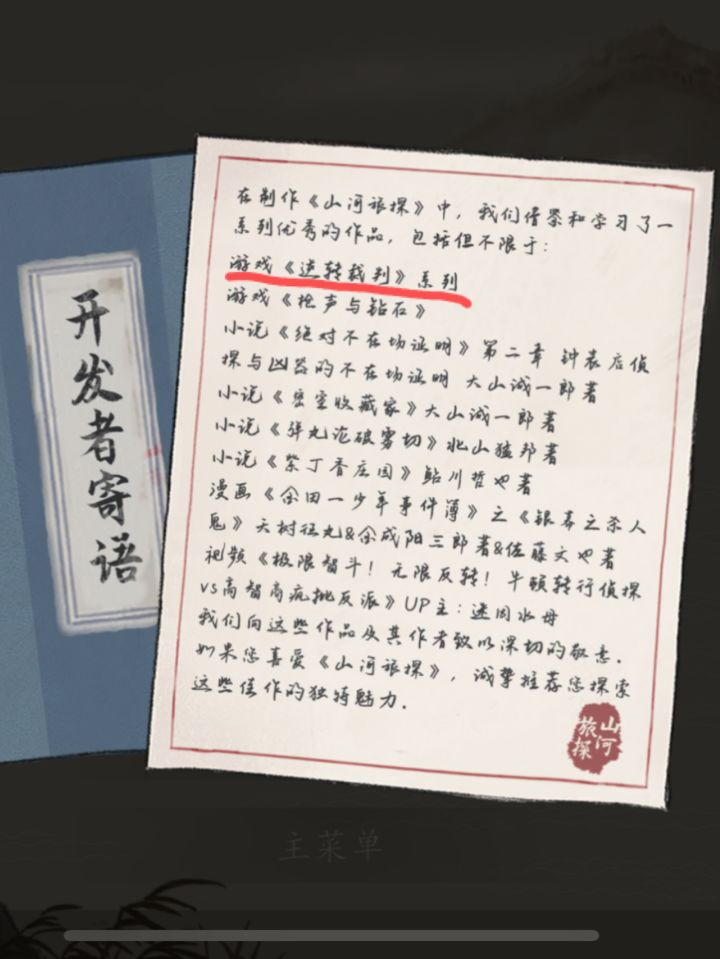 开发者寄语
在制作《山河旅探》中，我们借鉴和学习了一
系列优秀的作品，包括但不限于：
游戏《逆转裁判》系列
游戏《枪声与钻石》
小说《绝对不在场证明》第二章 钟表店侦
探与凶器的不在场证明 大山诚一郎著
小说《密室收藏家》大山诚一郎著
小说《弹丸论破雾切》北山猛邦著
小说《紫丁香庄园》鲇川哲也著
漫画《金田一少年事件簿》之《银幕之杀人
鬼》天树征丸&金成阳三郎著&佐藤文也著
视频《极限智斗！无限反转！牛顿转行侦探
vs高智商疯批反派》UP主：迷因水母
我们向这些作品及其作者致以深切的敬意.
如果您喜爱《山河旅探》，诚挚推荐您探索
这些佳作的独特魅力.
山河旅探
主菜单